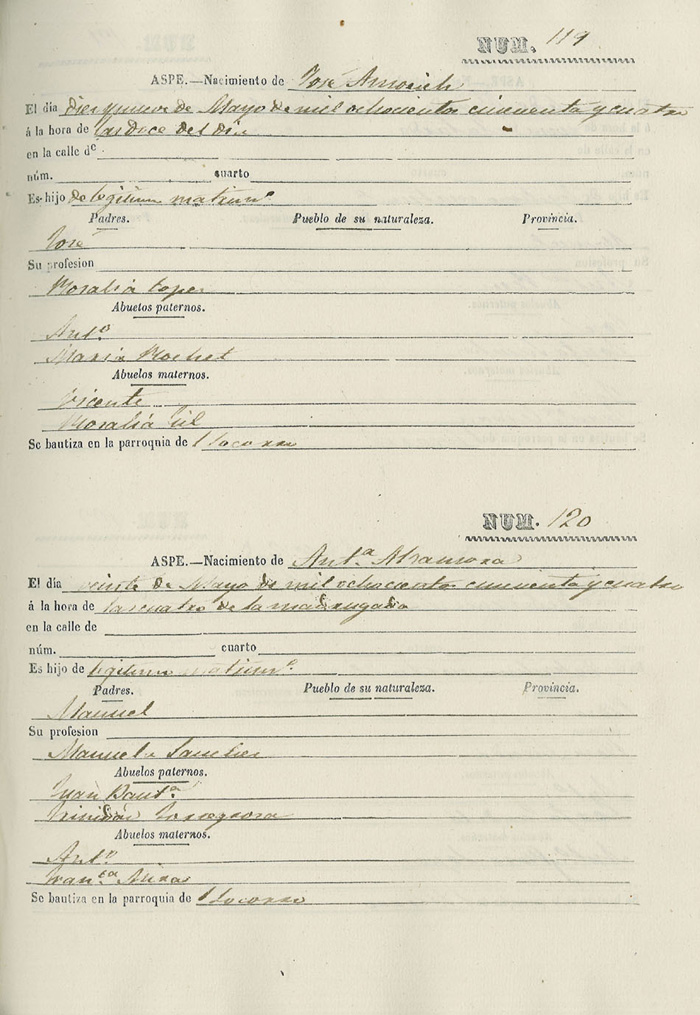 NUM. 119
ASPE.—Nacimiento de José
El dia diez y nueve de Mayo de mil ochocientos cincuenta y cuatro
á la hora de las doce del dia
en la calle de
núm. cuarto
Es hijo de legitimo matrim.º
Padres. Pueblo de su naturaleza. Provincia.
José
Su profesion
Rosalia Lopez
Abuelos paternos.
Ant.º
Maria
Abuelos maternos.
Vicente
Rosalia Gil
Se bautiza en la parroquia de l Socorro
NUM. 120
ASPE.—Nacimiento de Ant.ª
El dia veinte de Mayo de mil ochocientos cincuenta y cuatro
á la hora de las cuatro de la madrugada
en la calle de
núm. cuarto
Es hijo de legitimo matrim.º
Padres. Pueblo de su naturaleza. Provincia.
Manuel
Su profesion
Manuela Sanchez
Abuelos paternos.
Juan Baut.ª
Trinidad
Abuelos maternos.
Ant.º
Fran.ca
Se bautiza en la parroquia de l Socorro